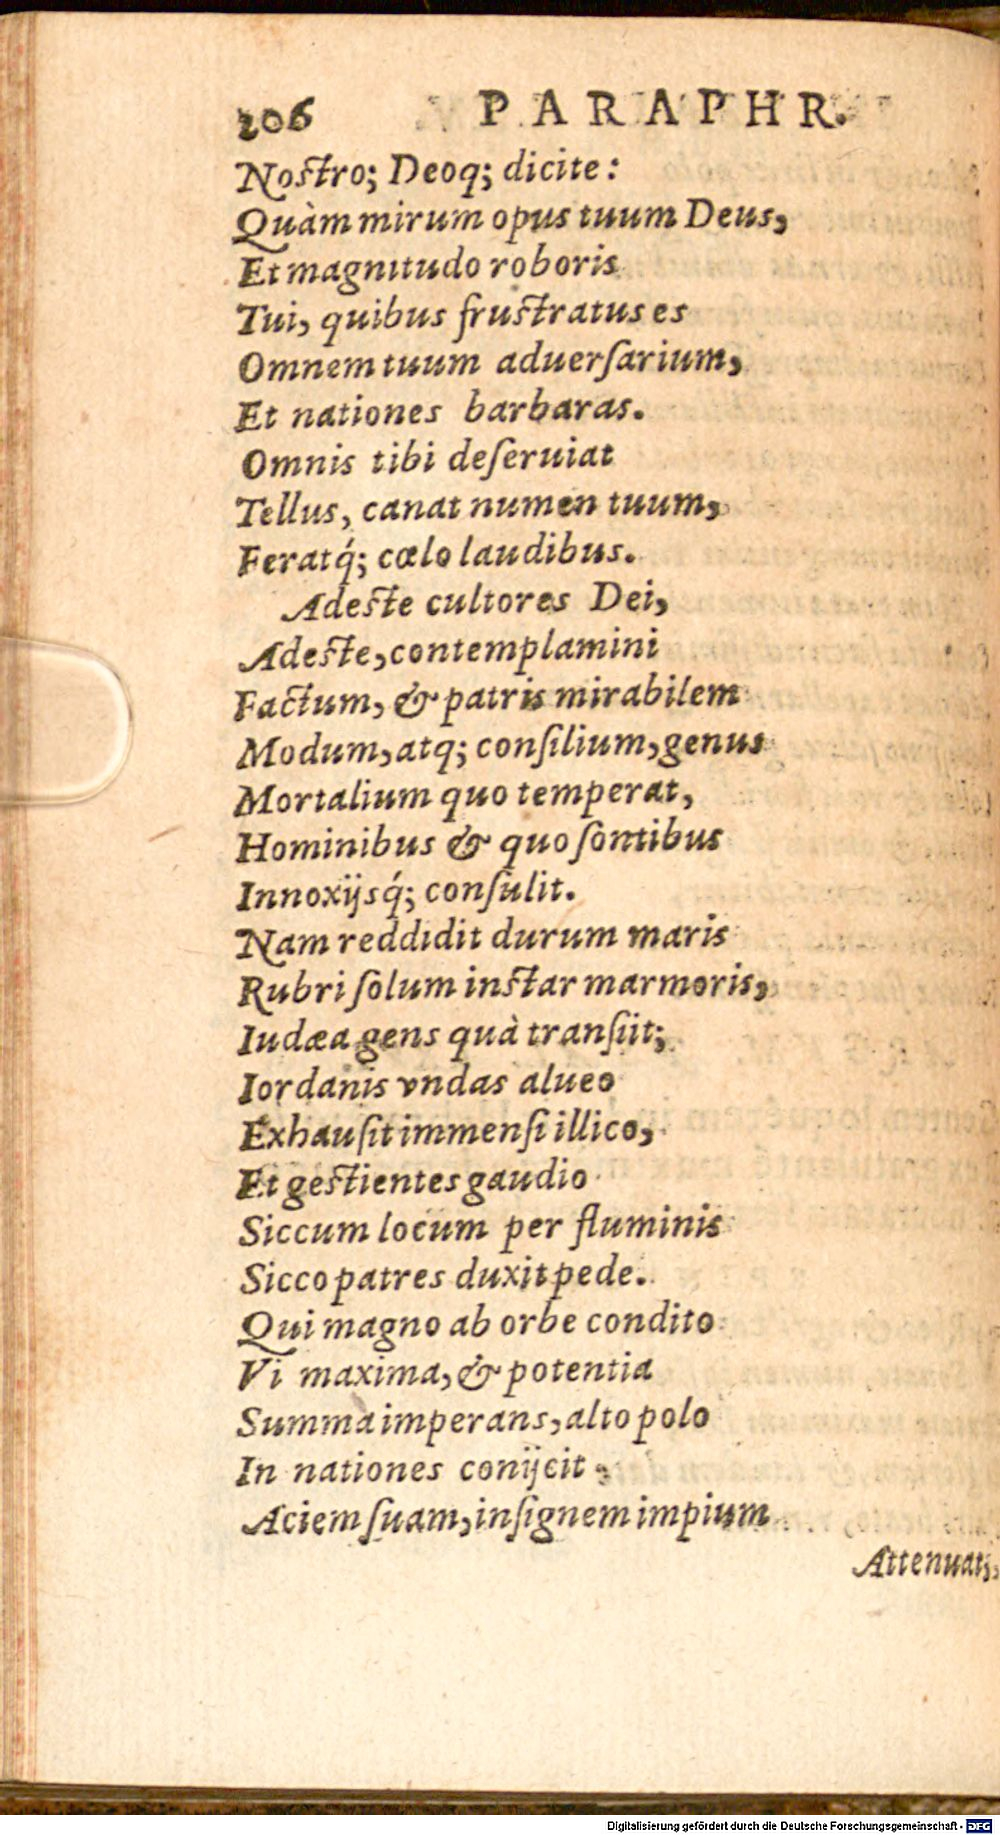 206 PARAPHR.
Nostro; Deoq; dicite:
Quàm mirum opus tuum Deus,
Et magnitudo roboris
Tui, quibus frustratus es
Omnem tuum aduerſarium,
Et nationes barbaras.
Omnis tibi deſeruiat
Tellus, canat numen tuum,
Feratq́; cœlo laudibus.
Adeste cultores Dei,
Adeste, contemplamini
Factum, & patris mirabilem
Modum, atq; conſilium, genus
Mortalium quo temperat,
Hominibus & quo ſontibus
Innoxijsq́; conſulit.
Nam reddidit durum maris
Rubri ſolum instar marmoris,
Iudæa gens quà tranſijt;
Iordanis vndas alueo
Exhauſit immenſi illico,
Et gestientes gaudio
Siccum locum per fluminis
Sicco patres duxit pede.
Qui magno ab orbe condito
Vi maxima, & potentia
Summa imperans, alto polo
In nationes conijcit
Aciem ſuam, inſignem impium
Attenuat,
Digitalisierung gefördert durch die Deutsche Forschungsgemeinschaft - DFG